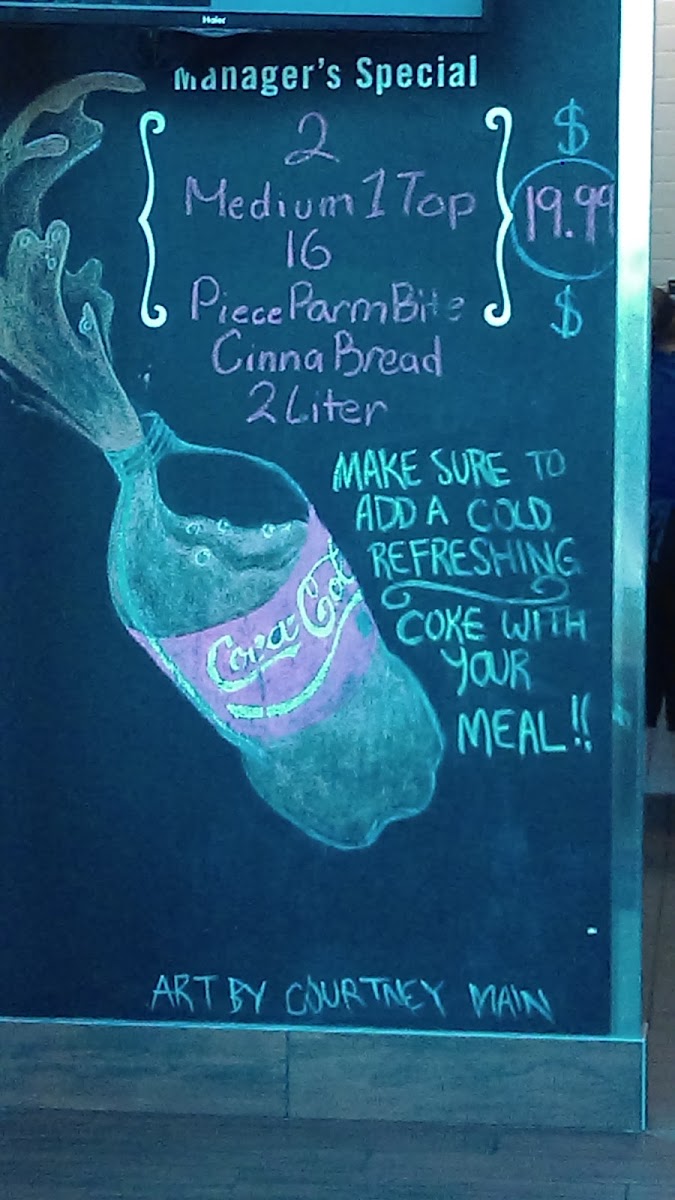 Haier
Manager's Special
2
Medium 1 Top
16
Piece Parm Bite
Cinna Bread
2 Liter
$
19.99
$
MAKE SURE TO
ADD A COLD
REFRESHING
COKE WITH
YOUR
MEAL!!
Coca-Cola
ART BY COURTNEY MAIN